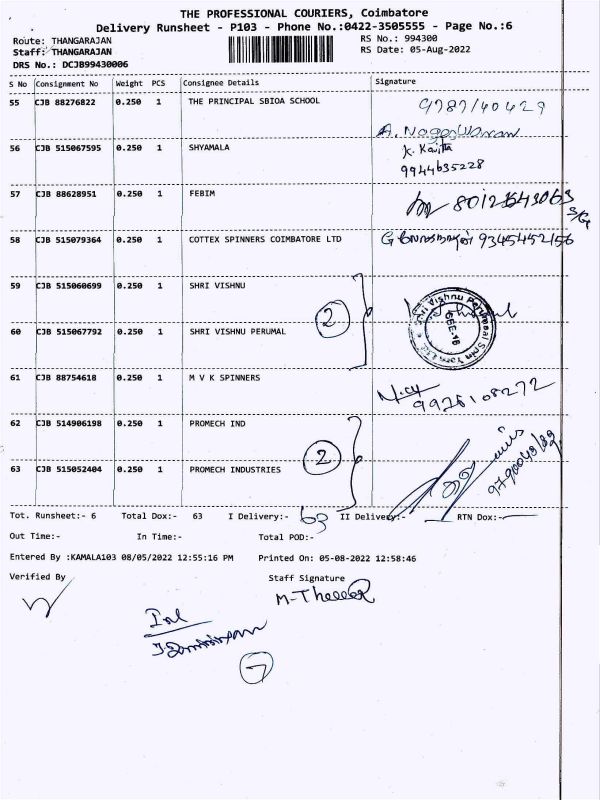 THE PROFESSIONAL COURIERS, Coimbatore
Delivery Runsheet - P103 - Phone No.:0422-3505555 - Page No.:6
Route: THANGARAJAN RS No.: 994300
Staff: THANGARAJAN RS Date: 05-Aug-2022
DRS No.: DCJB99430006
S No Consignment No Weight PCS Consignee Details Signature
55 CJB 88276822 0.250 1 THE PRINCIPAL SBIOA SCHOOL 9787140429
A. Nageswaran
56 CJB 515067595 0.250 1 SHYAMALA K. Kavitha
9944635228
57 CJB 88628951 0.250 1 FEBIM
58 CJB 515079364 0.250 1 COTTEX SPINNERS COIMBATORE LTD 9345452156
59 CJB 515060699 0.250 1 SHRI VISHNU
2
60 CJB 515067792 0.250 1 SHRI VISHNU PERUMAL
61 CJB 88754618 0.250 1 M V K SPINNERS
9926108272
62 CJB 514906198 0.250 1 PROMECH IND
2
63 CJB 515052404 0.250 1 PROMECH INDUSTRIES
Tot. Runsheet:- 6 Total Dox:- 63 I Delivery:- 63 II Delivery:- RTN Dox:-
Out Time:- In Time:- Total POD:-
Entered By :KAMALA103 08/05/2022 12:55:16 PM Printed On: 05-08-2022 12:58:46
Verified By Staff Signature
7